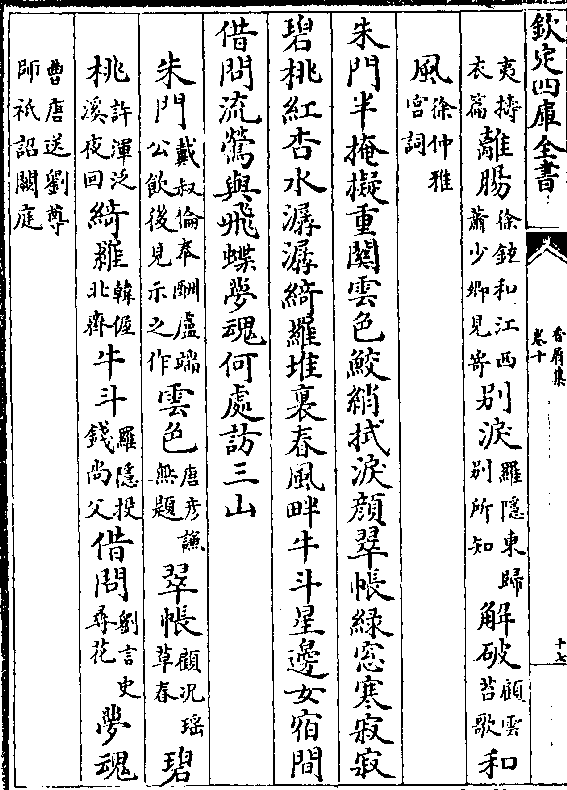 欽定四庫全書
香屑集
卷十
十七
夷擣衣篇離腸徐鉉和江西蕭少卿見寄别淚羅隱東歸别所知解破顧雲苔歌和
風徐仲雅宫詞
朱門半掩擬重關雲色鮫綃拭淚顔翠帳緑窓寒寂寂
碧桃紅杏水潺潺綺羅堆裏春風畔牛斗星邊女宿間
借問流鶯與飛蝶夢魂何處訪三山
朱門戴叔倫奉酬盧端公飲後見示之作雲色唐彦謙無題翠帳顧况瑶草春碧
桃許渾泛溪夜回綺羅韓偓北齊牛斗羅隱投錢尚父借問劉言史尋花夢魂
曹唐送劉尊師祗詔闕庭